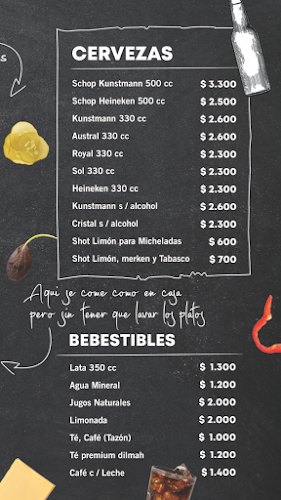 s
CERVEZAS
Schop Kunstmann 500 cc $ 3.300
Schop Heineken 500 cc $ 2.500
Kunstmann 330 cc $ 2.600
Austral 330 cc $ 2.600
Royal 330 cc $ 2.300
Sol 330 cc $ 2.300
Heineken 330 cc $ 2.300
Kunstmann s / alcohol $ 2.600
Cristal s / alcohol $ 2.300
Shot Limón para Micheladas $ 600
Shot Limón, merken y Tabasco $ 700
Aqui se come como en casa
pero sin tener que lavar los platos
BEBESTIBLES
Lata 350 cc $ 1.300
Agua Mineral $ 1.200
Jugos Naturales $ 2.000
Limonada $ 2.000
Té, Café (Tazón) $ 1.000
Té premium dilmah $ 1.200
Café c / Leche $ 1.400